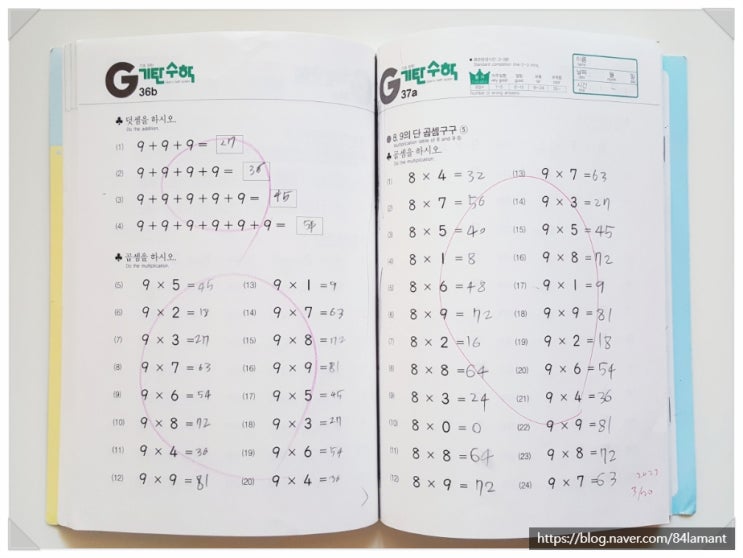 G 기탄수학
36b
♣ 덧셈을 하시오.
Do the addition.
(1) 9+9+9= 27
(2) 9+9+9+9= 36
(3) 9+9+9+9+9= 45
(4) 9+9+9+9+9+9= 54
♣ 곱셈을 하시오.
Do the multiplication.
(5) 9 × 5 = 45
(6) 9 × 2 = 18
(7) 9 × 3 = 27
(8) 9 × 7 = 63
(9) 9 × 6 = 54
(10) 9 × 8 = 72
(11) 9 × 4 = 36
(12) 9 × 9 = 81
(13) 9 × 1 = 9
(14) 9 × 7 = 63
(15) 9 × 8 = 72
(16) 9 × 9 = 81
(17) 9 × 5 = 45
(18) 9 × 3 = 27
(19) 9 × 6 = 54
(20) 9 × 4 = 36
G 기탄수학
37a
이름
날짜 월 일
시간
● 8, 9의 단 곱셈구구 ⑤
Multiplication table of 8 and 9-⑤
♣ 곱셈을 하시오.
Do the multiplication.
(1) 8 × 4 = 32
(2) 8 × 7 = 56
(3) 8 × 5 = 40
(4) 8 × 1 = 8
(5) 8 × 6 = 48
(6) 8 × 9 = 72
(7) 8 × 2 = 16
(8) 8 × 8 = 64
(9) 8 × 3 = 24
(10) 8 × 0 = 0
(11) 8 × 8 = 64
(12) 8 × 9 = 72
(13) 9 × 7 = 63
(14) 9 × 3 = 27
(15) 9 × 5 = 45
(16) 9 × 8 = 72
(17) 9 × 1 = 9
(18) 9 × 9 = 81
(19) 9 × 2 = 18
(20) 9 × 6 = 54
(21) 9 × 4 = 36
(22) 9 × 9 = 81
(23) 9 × 8 = 72
(24) 9 × 7 = 63
https://blog.naver.com/84lamant